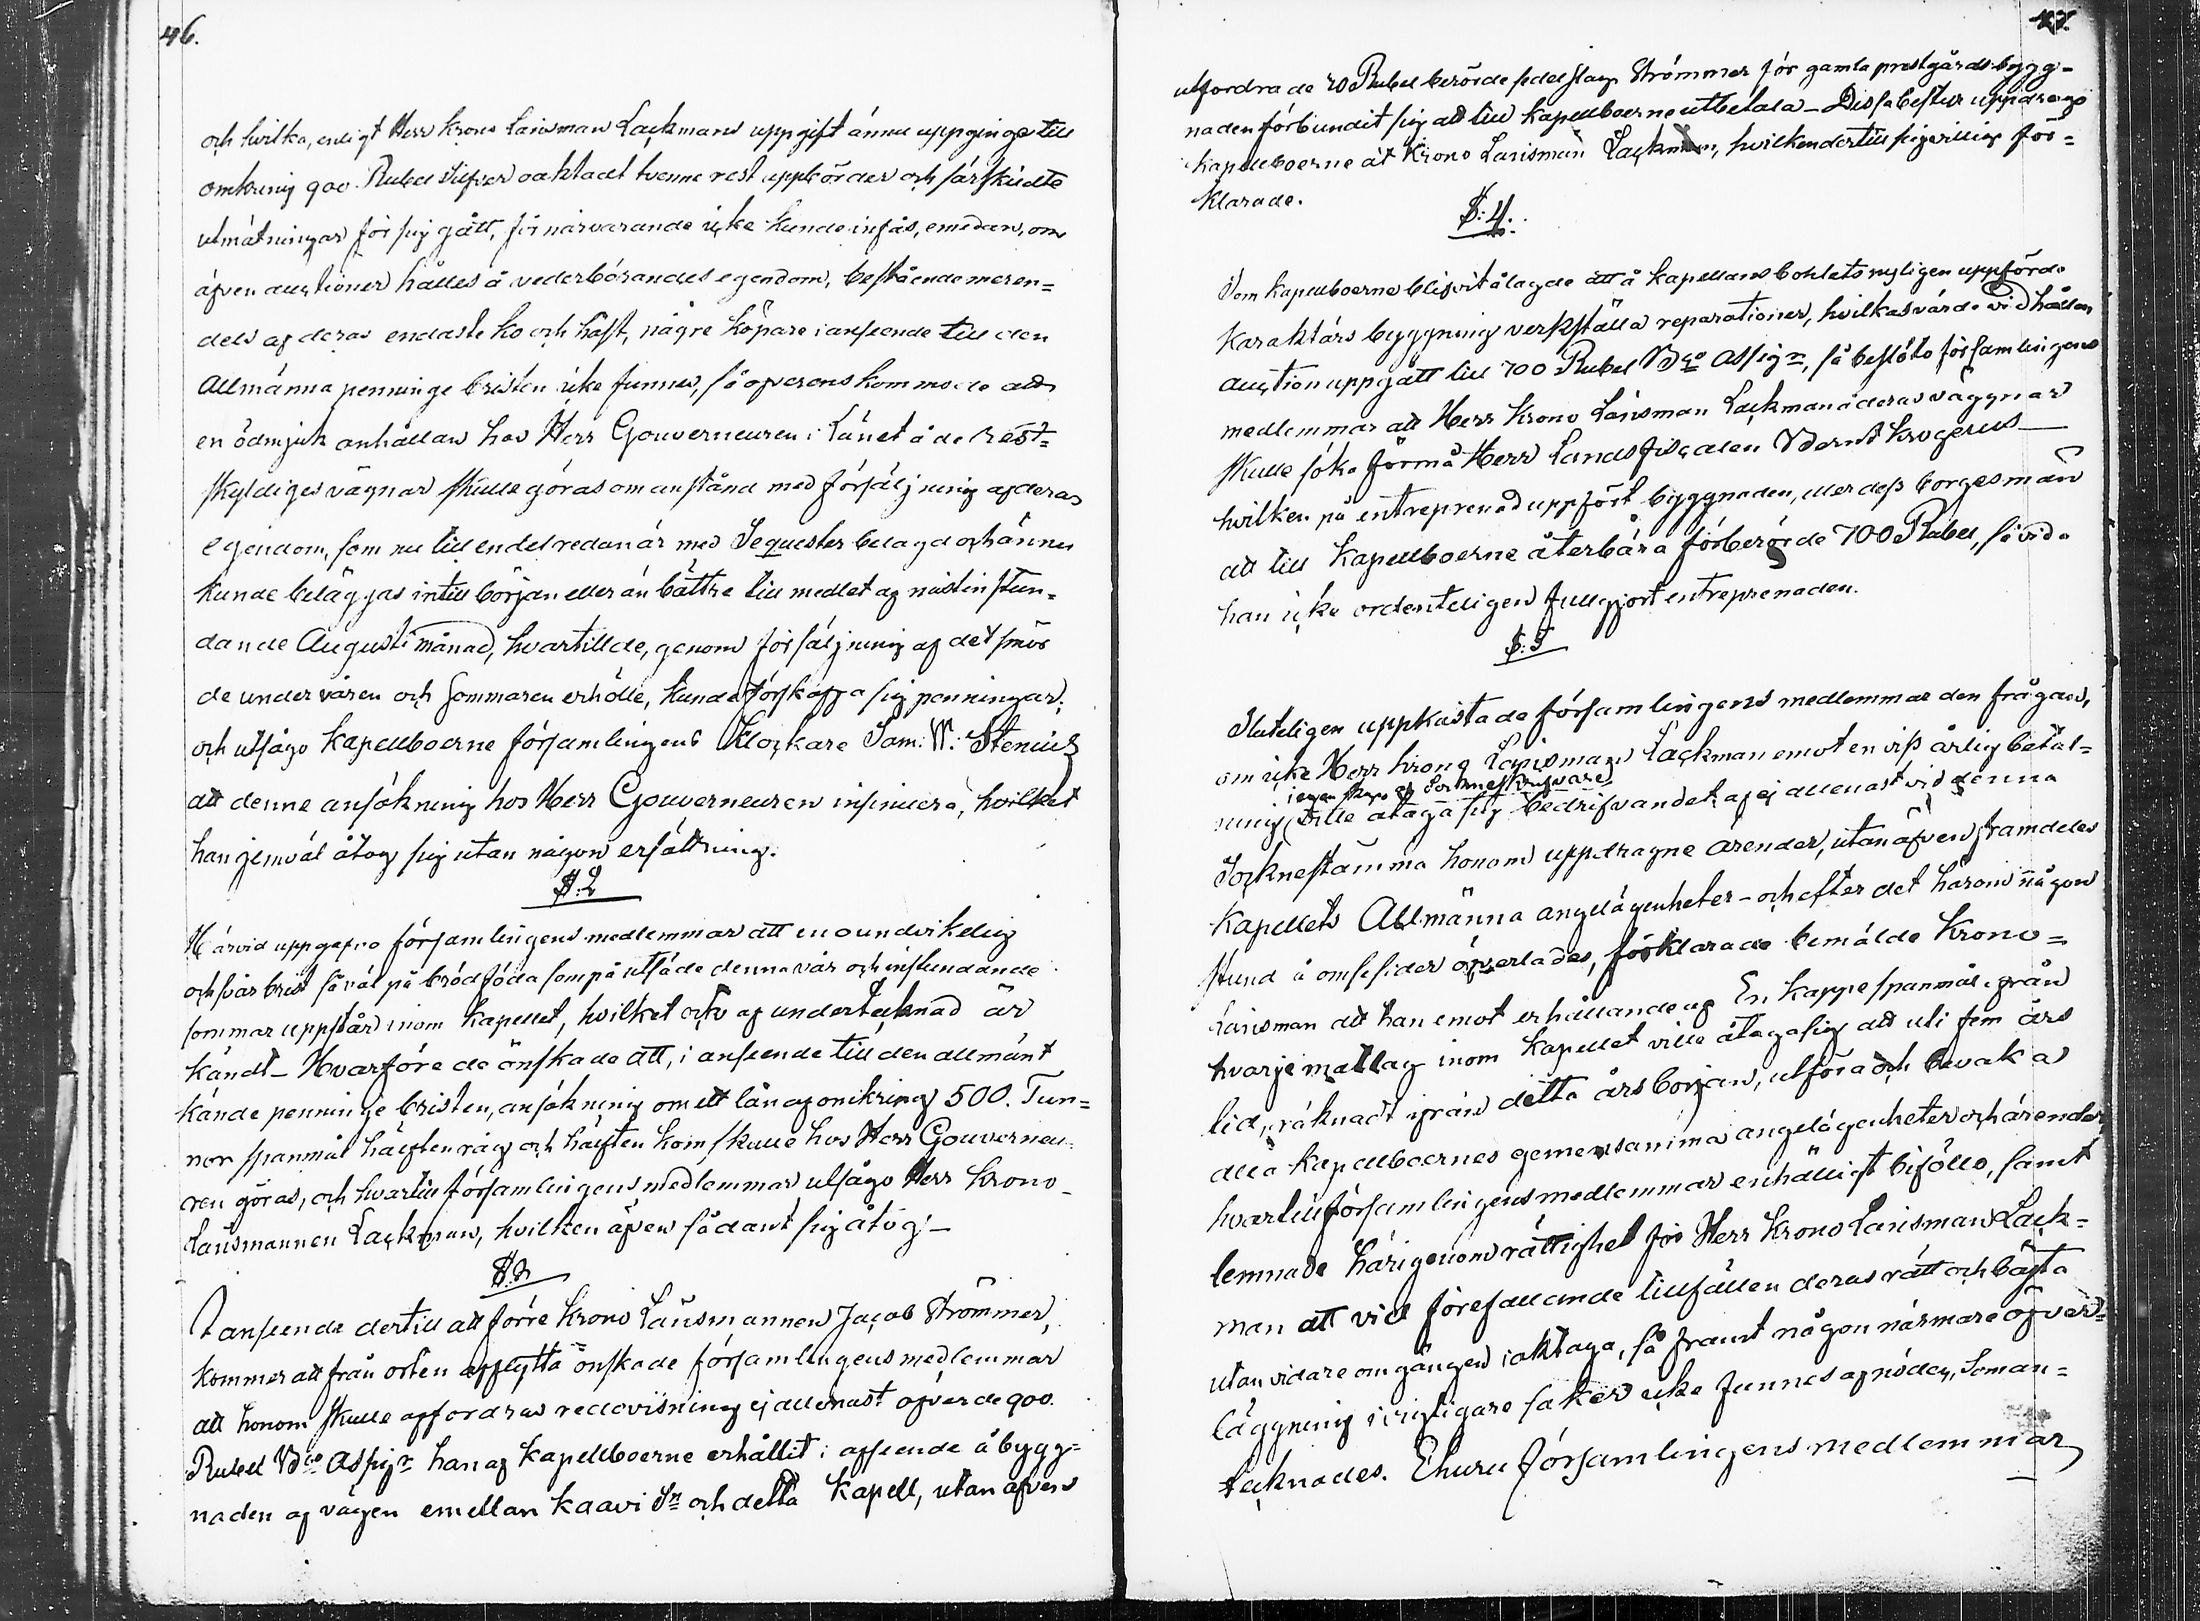 46.
och hvilka, enligt Herr Krono Länsman Lackmans uppgift ännu uppginge till
omkring 900. Rubel Silfver oaktadt tvenne rest uppbörder och särskildte
utmätningar för sig gått, för närvarande icke kunde infås, emedan, om
äfven auctioner hålles å vederbörandes egendom, bestående meren=
dels af deras endaste ko och häst, någre köpare i anseende till den
Allmänna penninge bristen icke funnes, så öfverens kommo de att
en ödmjuk anhållan hos Herr Gouverneuren i Länet å de Rest=
skyldiges vägnar skulle göras om anstånd med försäljning af deras
egendom, som nu till en del redan är med Sequester belagd och ännu
kunde beläggas intill början eller än bättre till medlet af nästinstun=
dande Augusti månad, hvartill de, genom försäljning af det smör
de under våren och Sommaren erhölle, kunde förskaffa sig penningar;
och utsågo Kapellboerne församlingens Klockare Sam: W: Stenius
att denne ansökning hos Herr Gouverneuren insinuera, hvilket
han jemväl åtog sig utan någon ersättning.
§: 2
Härvid uppgåfvo församlingens medlemmar att en oundvikelig
och svår brist såväl på brödföda som på utsäde denna vår och instundande
sommar uppstår inom Kapellet, hvilket ock af undertecknad är
kändt – Hvarföre de önskade att, i anseende till den allmänt
kände penninge bristen, ansökning om ett lån af omkring 500. Tun=
nor spanmål hälften råg och hälften korn skulle hos Herr Gouverneu=
ren göras, och hvartill församlingens medlemmar utsågo Herr Krono-
Länsmannen Lackman, hvilken äfven sådant sig åtog –
§: 3
I anseende dertill att förre Krono Länsmannen Jacob Strömmer,
kommer att från orten afflytta önskade församlingens medlemmar
att honom skulle affordras redovisning ej allenast öfver de 900.
Rubel Bco Assigr han af Kapellboerne erhållit i afseende å bygg=
naden af vägen emellan Kaavi Sn och detta Kapell, utan äfven
47.
utfordra de 20 Rubel berörde sedel slag Strömmer för gamla prestgårds bygg=
naden förbundit sig att till Kapellboerne utbetala – Dessa bestyr uppdrogo
Kapellboerne åt Krono Länsman Lackman, hvilken dertill sig villig för=
klarade.
§: 4.
Som Kapellboerne blifvit ålagde att å Kapellans bohlets nyligen uppförde
Karaktärs byggning verkställa reparationer, hvilkas värde vid hållen
Auction uppgått till 700 Rubel Bco Assigr, så beslöto församlingens
medlemmar att Herr Krono Länsman Lackman å deras vägnar
skulle söka förmå Herr Landsfiscalen Berndt Krogerus –
hvilken på entreprenad uppfört byggnaden, eller dess borgesmän
att till Kapellboerne återbära förberörde 700 Rubel, så vida
han icke ordenteligen fullgjort entreprenaden.
§: 5
Sluteligen uppkastade församlingens medlemmar den frågan,
om icke Herr Krono Länsman Lackman emot en viss årlig betal=
i egenskap af Sockneskrifvare
ning, ville åtaga sig bedrifvandet af ej allenast vid denna
Sockneståmma honom uppdragne ärender, utan äfven framdeles
Kapellets Allmänna angelägenheter – och efter det härom någon
stund å ömse sidor öfverlades, förklarade bemälde Krono=
Länsman att han emot erhållande af En Kappe spanmål ifrån
hvarje matlag inom Kapellet ville åtaga sig att uti fem års
tid, räknadt ifrån detta års början, utföra och bevaka
alla Kapellboernes gemensamma angelägenheter och ärender,
hvartill församlingens medlemmar enhälligt biföllo, samt
lemnade härigenom rättighet för Herr Krono Länsman Lack=
man att vid förefallande tillfällen deras rätt och bästa
utan vidare omgången iakttaga, så framt någon närmare öfver=
läggning i vigtigare saker icke funnes af nöden, Som an=
tecknades. Ehuru församlingens medlemmar